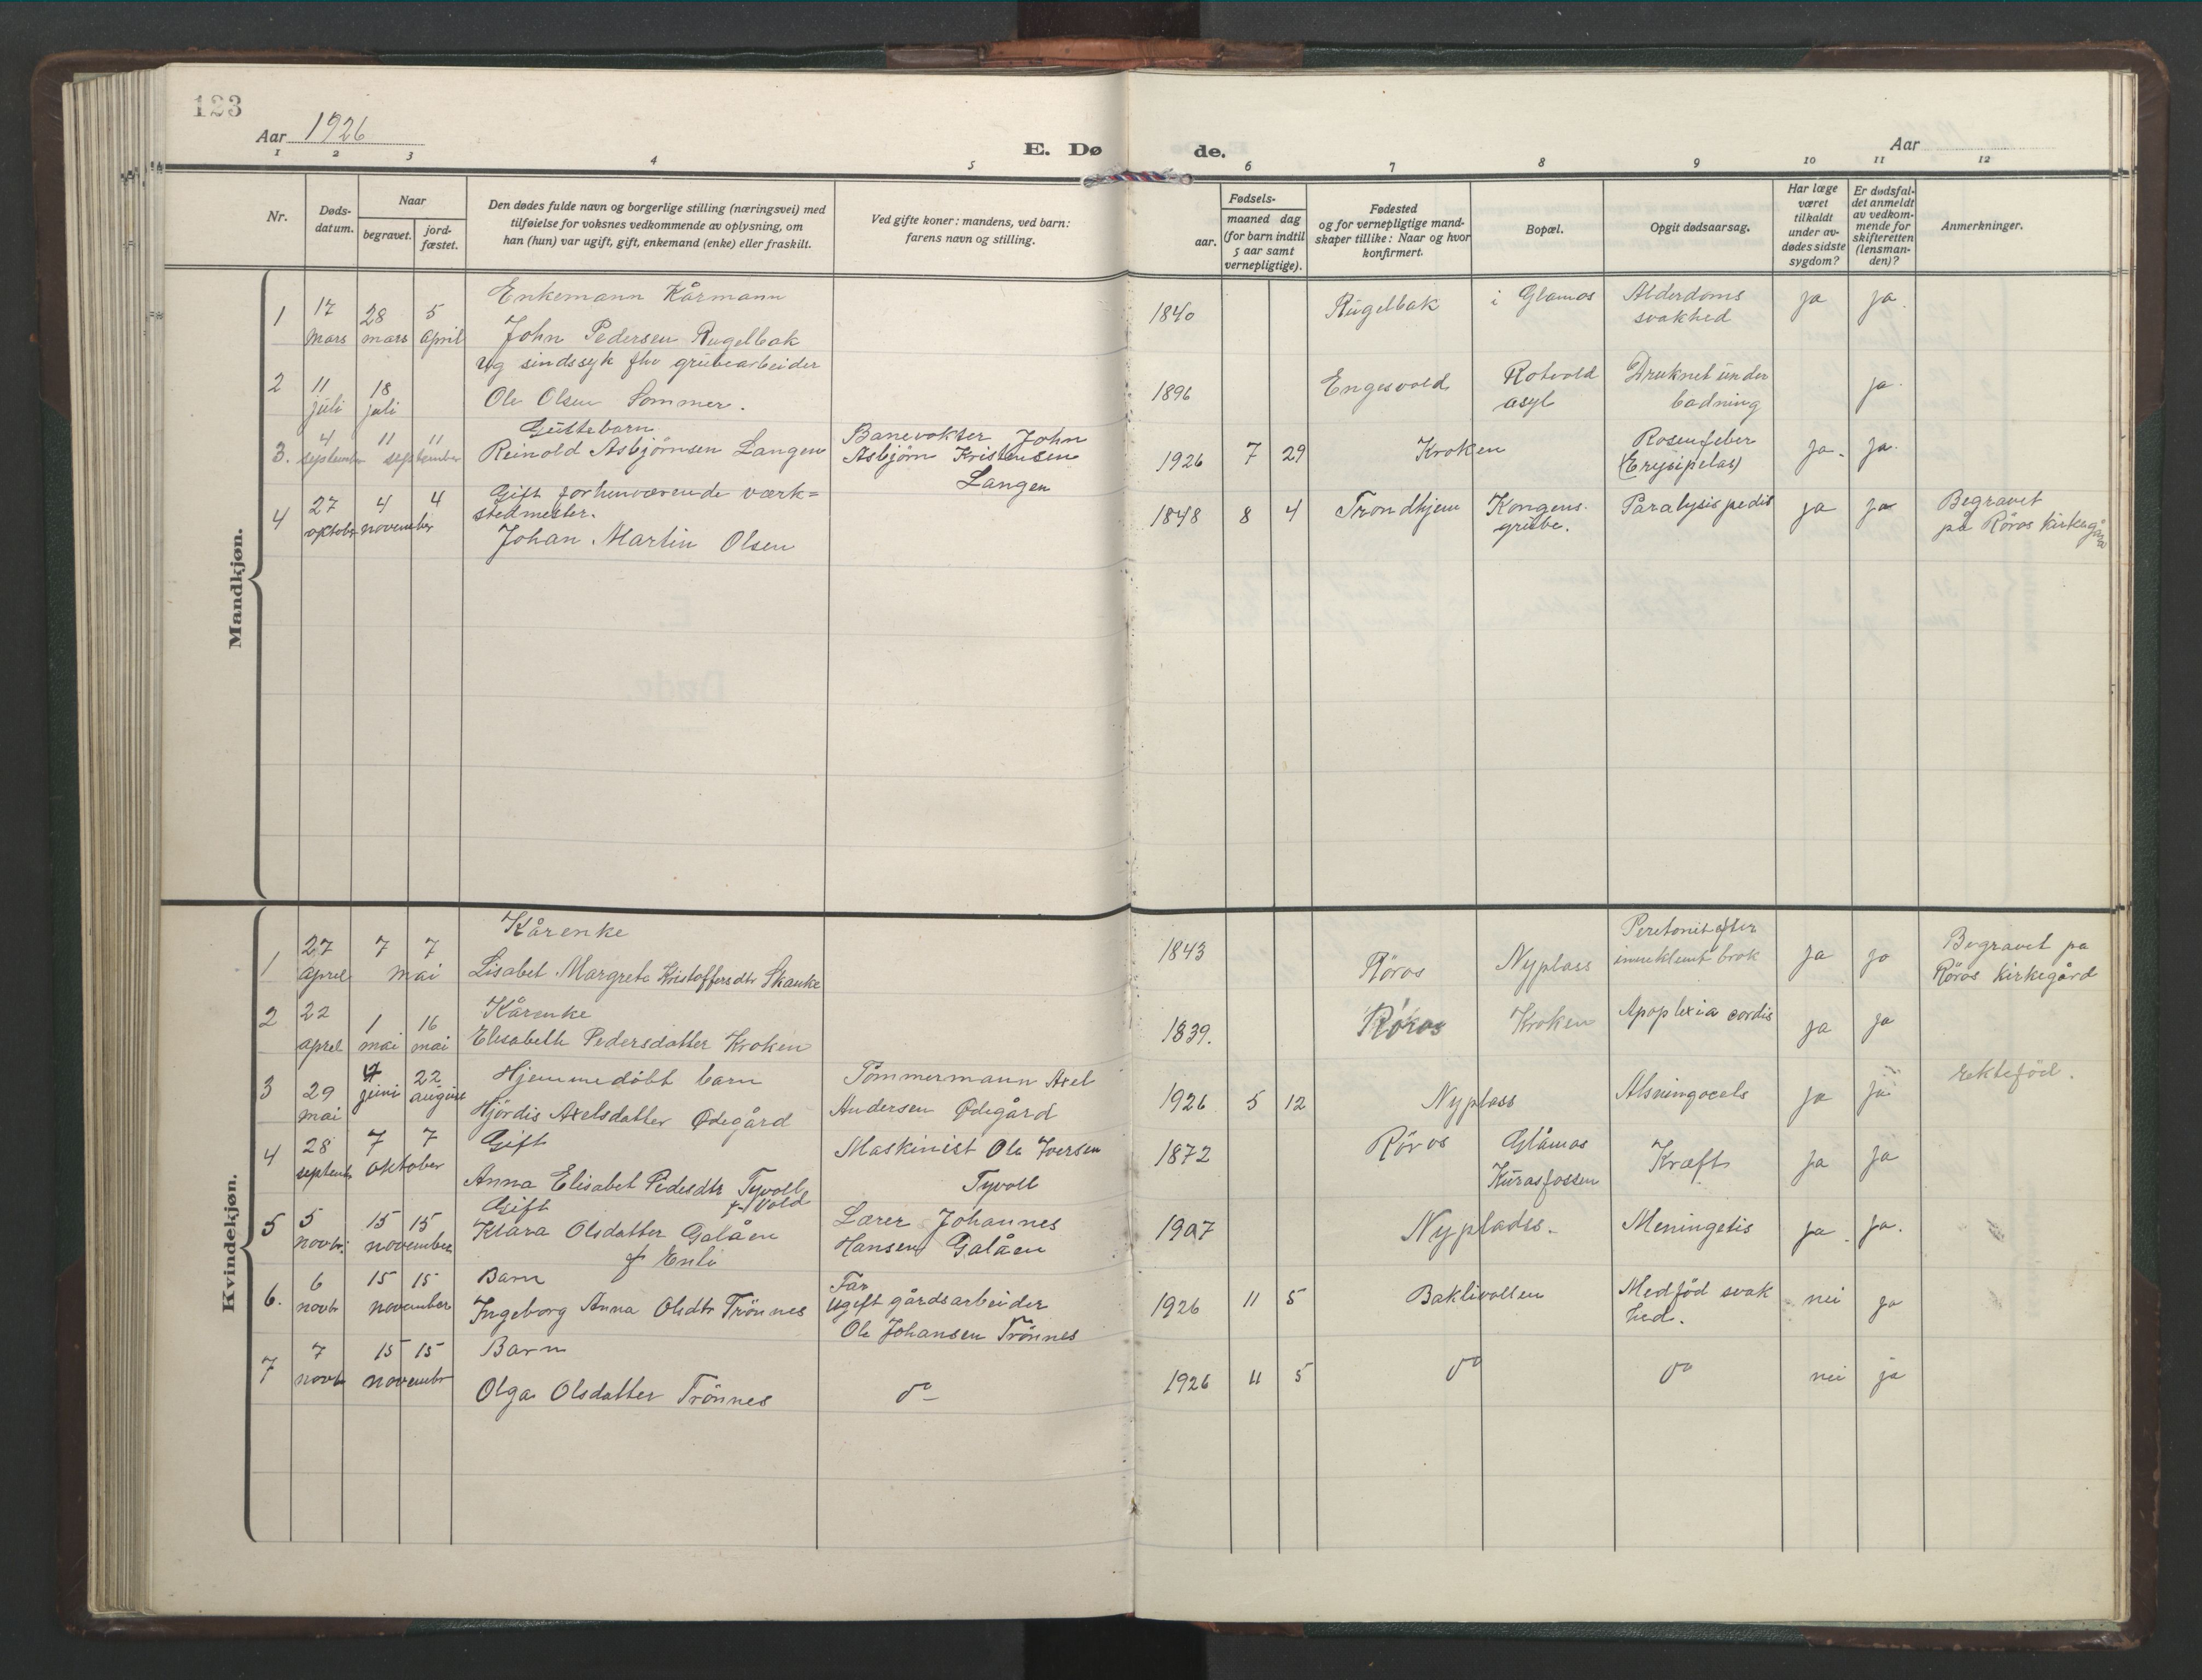 123
Aar 1926
E. Dø
de.
Aar
1 2 3 4 5 6 7 8 9 10 11 12
Nr.
Døds-
datum.
Naar
begravet.
jord-
fæstet.
Den dødes fulde navn og borgerlige stilling (næringsvei) med
tilføielse for voksnes vedkommende av oplysning, om
han (hun) var ugift, gift, enkemand (enke) eller fraskilt.
Ved gifte koner: mandens, ved barn:
farens navn og stilling.
Fødsels-
aar.
maaned dag
(for barn indtil
5 aar samt
vernepligtige).
Fødested
og for vernepligtige mand-
skaper tillike: Naar og hvor
konfirmert.
Bopæl.
Opgit dødsaarsag.
Har læge
været
tilkaldt
under av-
dødes sidste
sygdom?
Er dødsfal-
det anmeldt
av vedkom-
mende for
skifteretten
(lensman-
den)?
Anmerkninger.
Mandkjøn.
1
17
mars
28
mars
5
april
Enkemann Kårmann
John Pedersen Rugelbak
1840
Rugelbak
i Glamos
Alderdoms
svakhed
ja
ja.
2
11
juli
18
juli
Ug sindssyk fhv grubearbeider
Ole Olsen Sommer.
1896
Engesvold
Rotvold
asyl
Druknet under
badning
ja.
3.
4
september
11 11
september
Guttebarn
Reinold Asbjørnsen Langen
Banevokter John
Asbjørn Kristensen
Langen
1926
7
29
Kroken
Rosenfeber
(Erysipelas)
Ja.
ja.
4
27
oktober
4 4
november
Gift forhenværende værk=
stedmester.
Johan Martin Olsen
1848
8
4
Trondhjem
Kongens.
grube.
Paralysis pedis
ja
ja
Begravet
på Röros kirkegård
Kvindekjøn.
1
27
aprel
7 7
mai
Kårenke
Lisabet Margrete Kristoffersdtr Skanke
1843
Röros
Nyplass
Peretonit efter
inneklemt brok
ja
ja
Begravet pa
Röros kirkegård
2
22
aprel
1
mai
16
mai
Kårenke
Elisabeth Pedersdatter Kroken
1839.
Röros
Kroken
Apoplexia cordis
ja
ja
3
29
mai
juni
22
august
Hjemmedöbt barn
Hjördis Axelsdatter Ødegård
Tömmermann Axel
Andersen Ødegård
1926
5
12
Nyplass
ja
ja
ektefød.
4
28
septemb
7 7
oktober
Gift
Anna Elisabet Pedesdtr Tyvoll
f. Vold
Maskinist Ole Iversen
Tyvoll
1872
Röros
Glåmos
Kurasfossen
Kræft
ja
ja
5
5
novbr.
15 15
november
Gift
Klara Olsdatter Galåen
f Enli
Lærer Johannes
Hansen Galåen
1907
Nyplads.
Meningetis
ja.
ja.
6.
6
novbr
15 15
november
Barn
Ingeborg Anna Olsdtr Trönnes
Far
Ugift gårdsarbeider
Ole Johansen Trönnes
1926
11
5
Baklivollen
Medfód svak
hed.
nei
ja
7
7
novbr
15 15
novembr
Barn
Olga Olsdatter Trönnes
do
1926
11
5
do
do
nei
ja